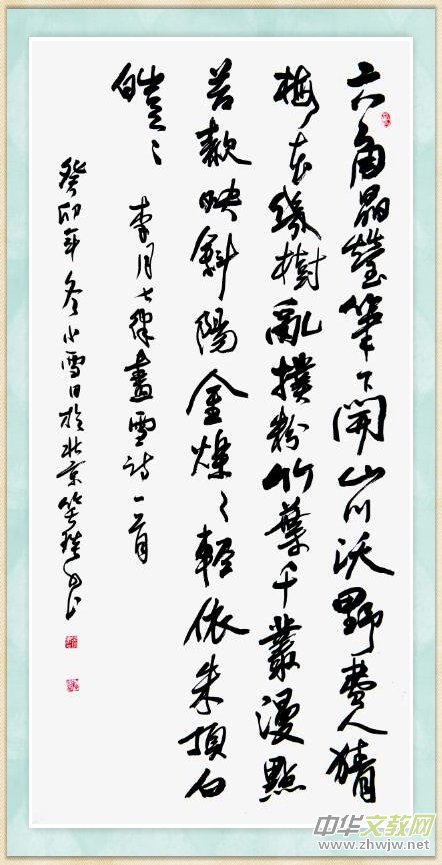 六角晶瑩筆下開山川沃野費人猜
梅花幾樹亂撲粉竹葉千叢漫點
苔欹映斜陽金燦々輕依朱頂白
皚々 李月七律畫雪詩一首
癸卯年冬小雪日於北京
中华文教网
www.zhwjw.net